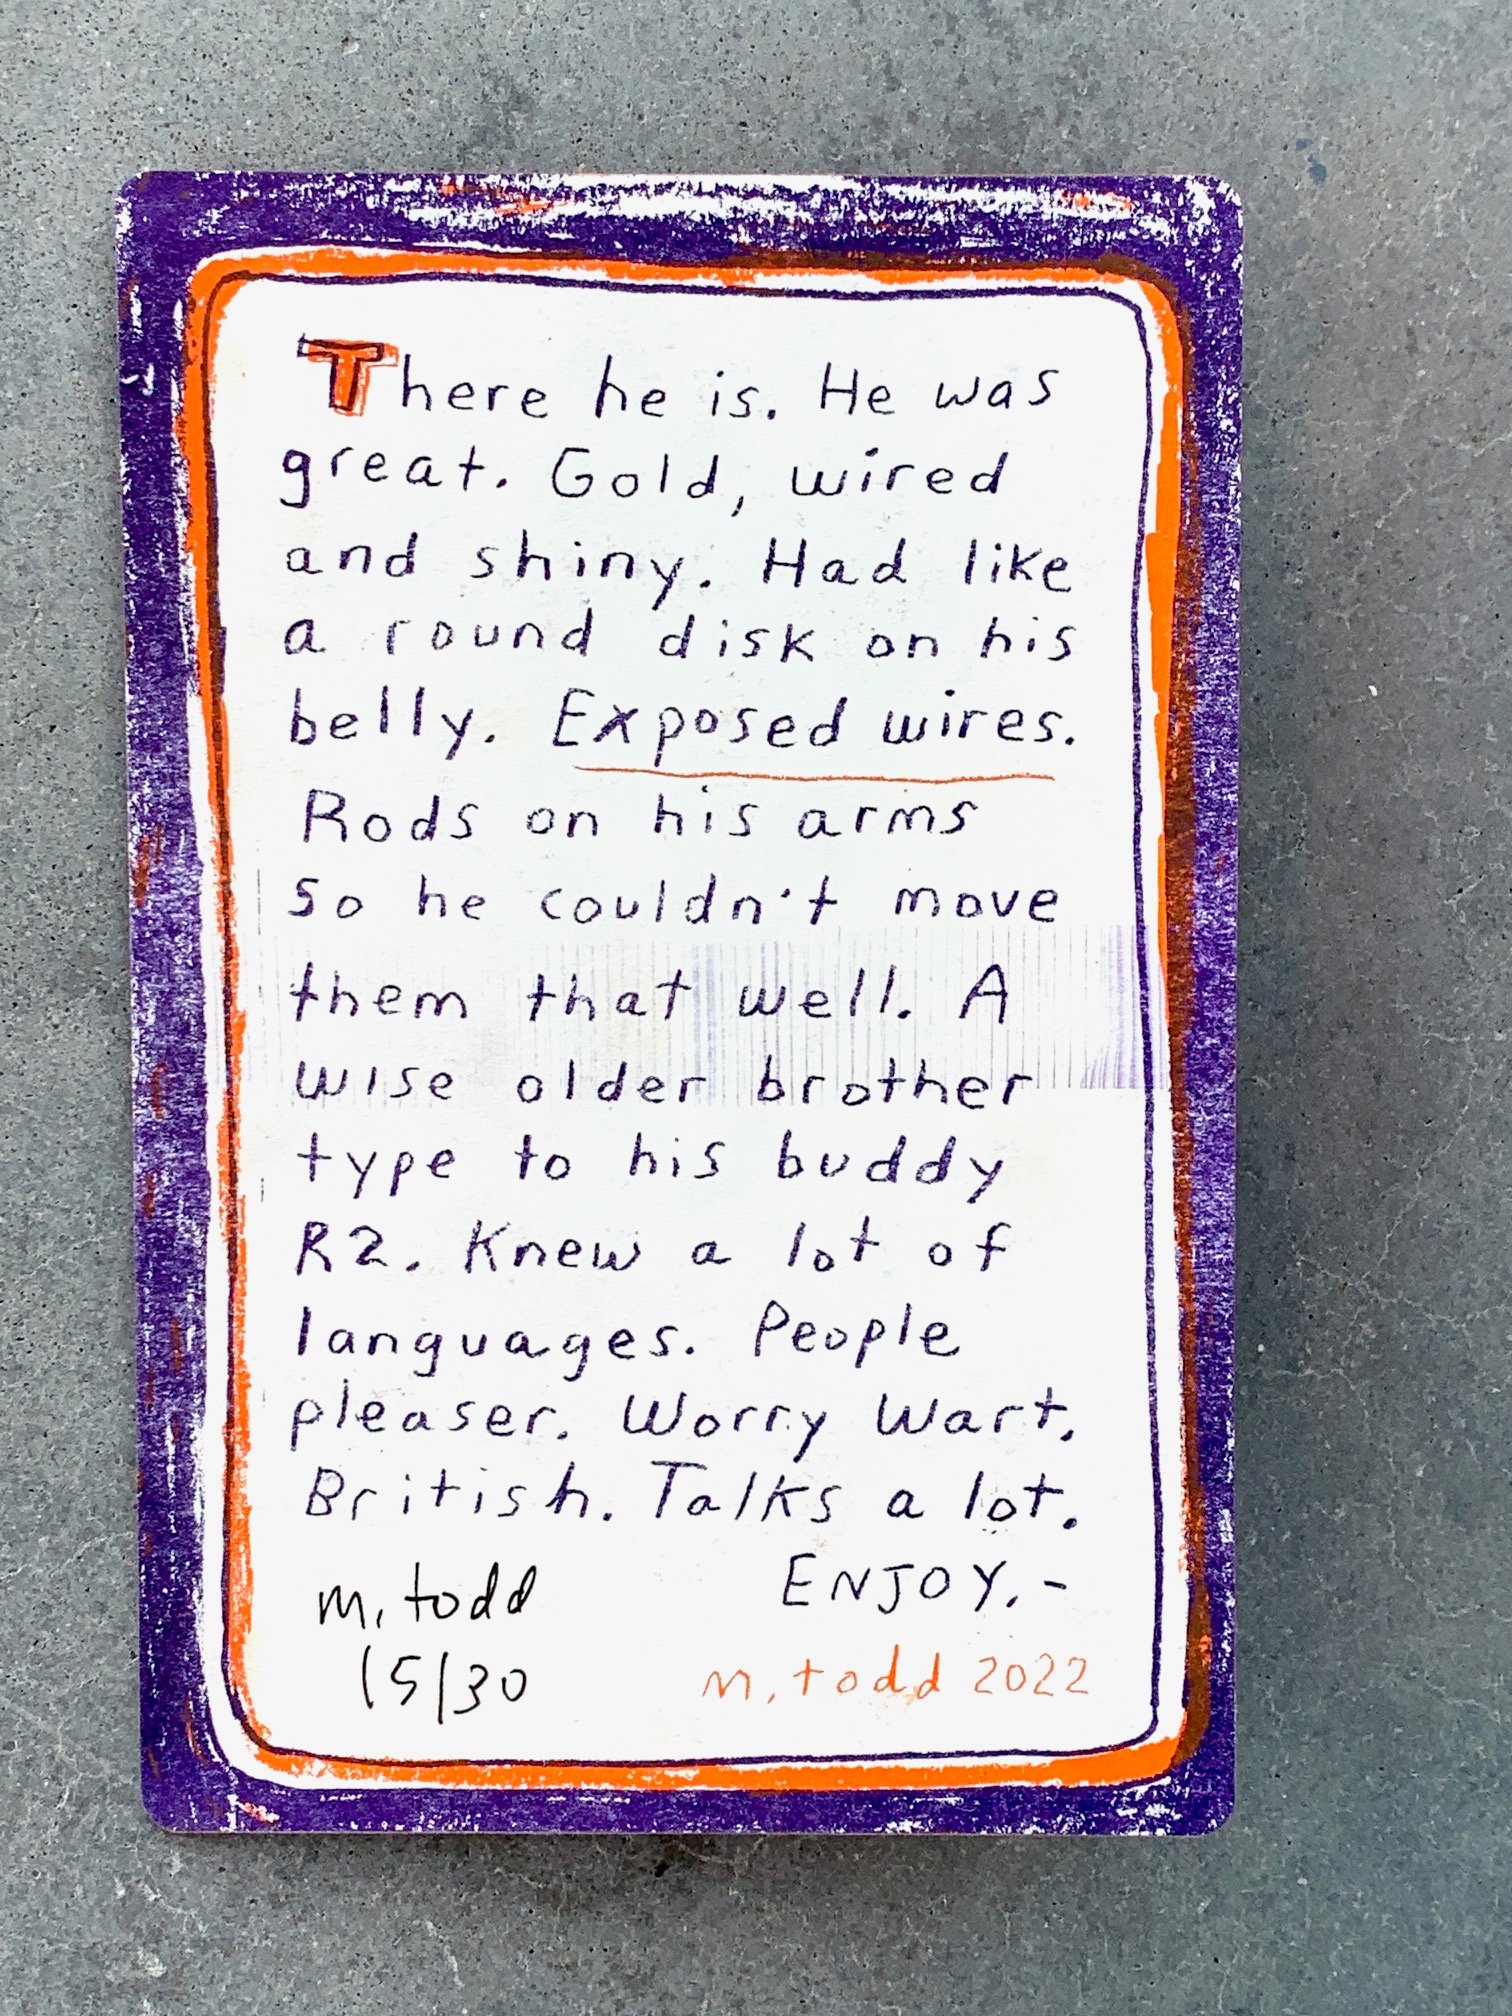 There he is. He was
great. Gold, wired
and shiny. Had like
a round disk on his
belly. Exposed wires.
Rods on his arms
so he couldn't move
them that well. A
wise older brother
type to his buddy
R2. Knew a lot of
languages. People
pleaser. Worry Wart.
British. Talks a lot.
ENJOY. -
m. todd
15/30
m. todd 2022